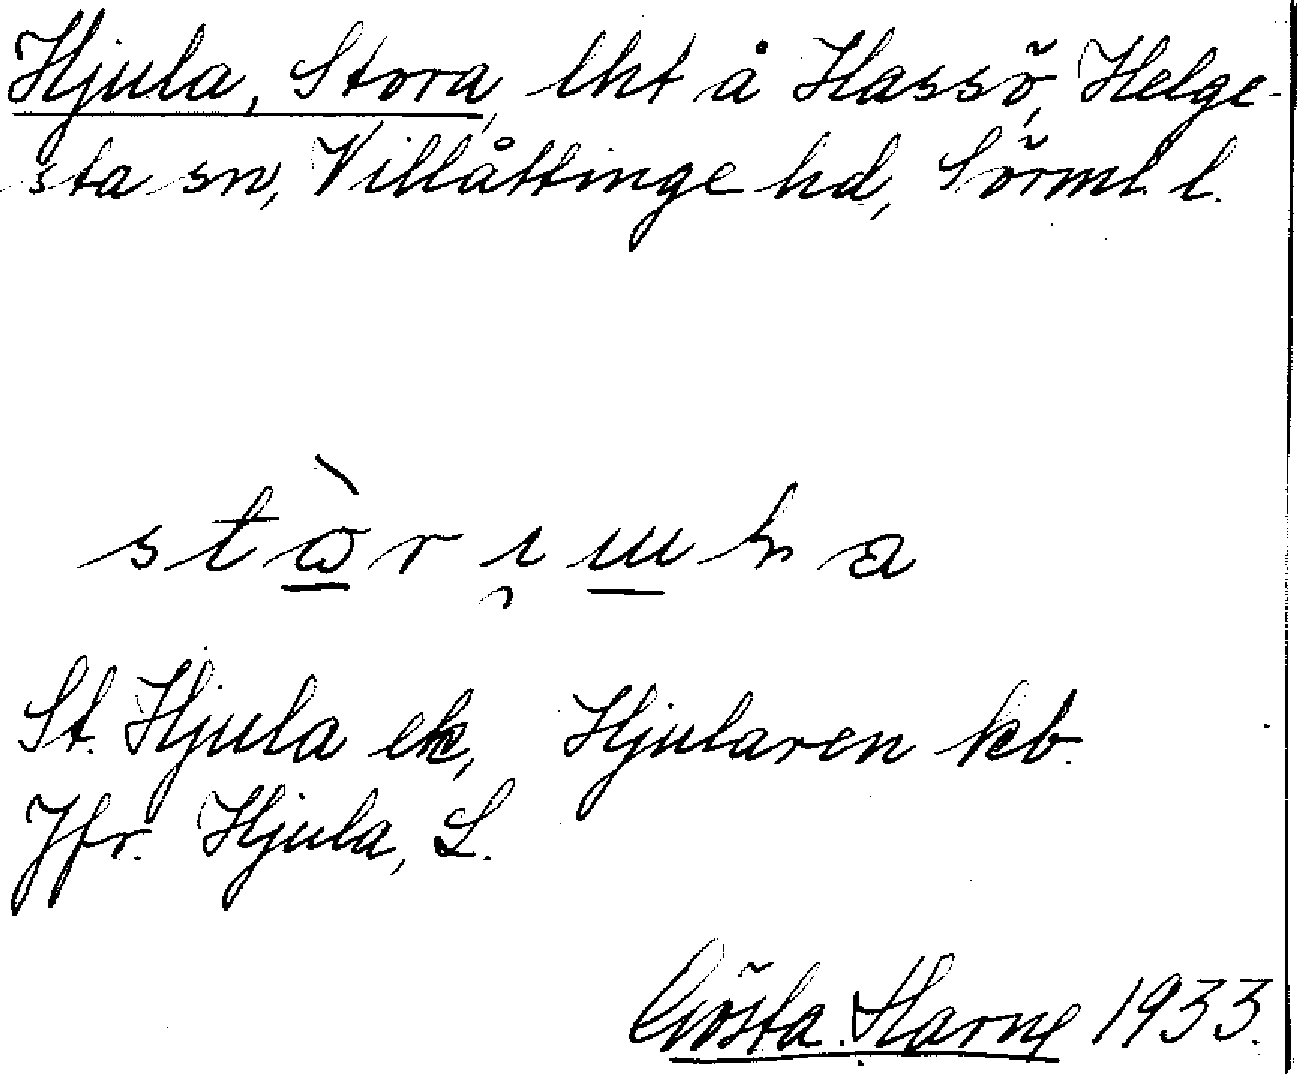 Hjula, Stora, lht å Hassö, Helge-
sta sn, Villåttinge hd, Sörml. l.
St. Hjula ek, Hjularen kb.
Jfr. Hjula, L.
Gösta Harne 1933.